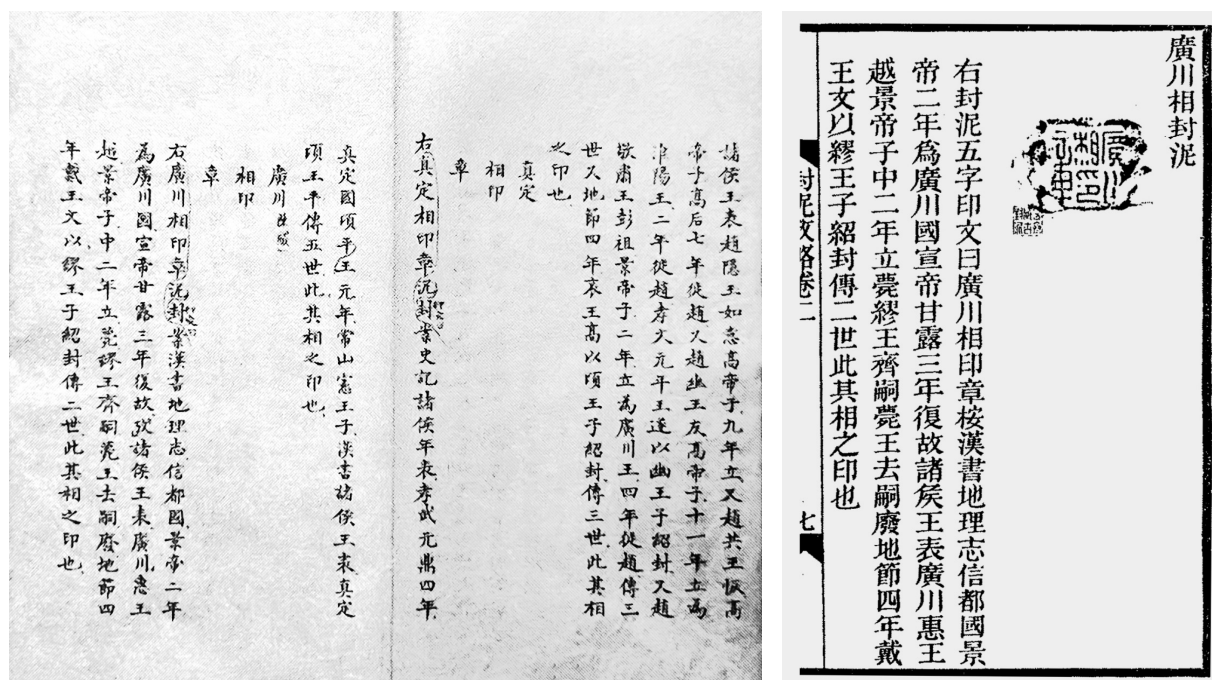 諸侯王表趙隱王如意高帝子九年立又趙共王恢高
帝子高后七年徙趙又趙幽王友高帝子十一年立為
淮陽王二年徙趙孝文元年王遂以幽王子紹封又趙
敬肅王彭祖景帝子二年立為廣川王四年徙趙傳三
世又地節四年哀王高以頃王子紹封傳三世此其相
之印也
真定
相印
章
右真定相印章泥封案史記諸侯年表孝武元鼎四年
真定國頃平王元年常山憲王子漢書諸侯王表真定
頃王平傳五世此其相之印也
廣川
相印
章
右廣川相印章泥封案漢書地理志信都國景帝二年
為廣川國宣帝甘露三年復故攷諸侯王表廣川惠王
越景帝子中二年立薨繆王齊嗣薨王去嗣廢地節四
年戴王文以繆王子紹封傳二世此其相之印也
廣川相封泥
廣川
相印
章
右封泥五字印文曰廣川相印章桉漢書地理志信都國景
帝二年爲廣川國宣帝甘露三年復故諸矦王表廣川惠王
越景帝子中二年立薨繆王齊嗣薨王去嗣廢地節四年戴
王文以繆王子紹封傳二世此其相之印也
封泥攷略卷二
七